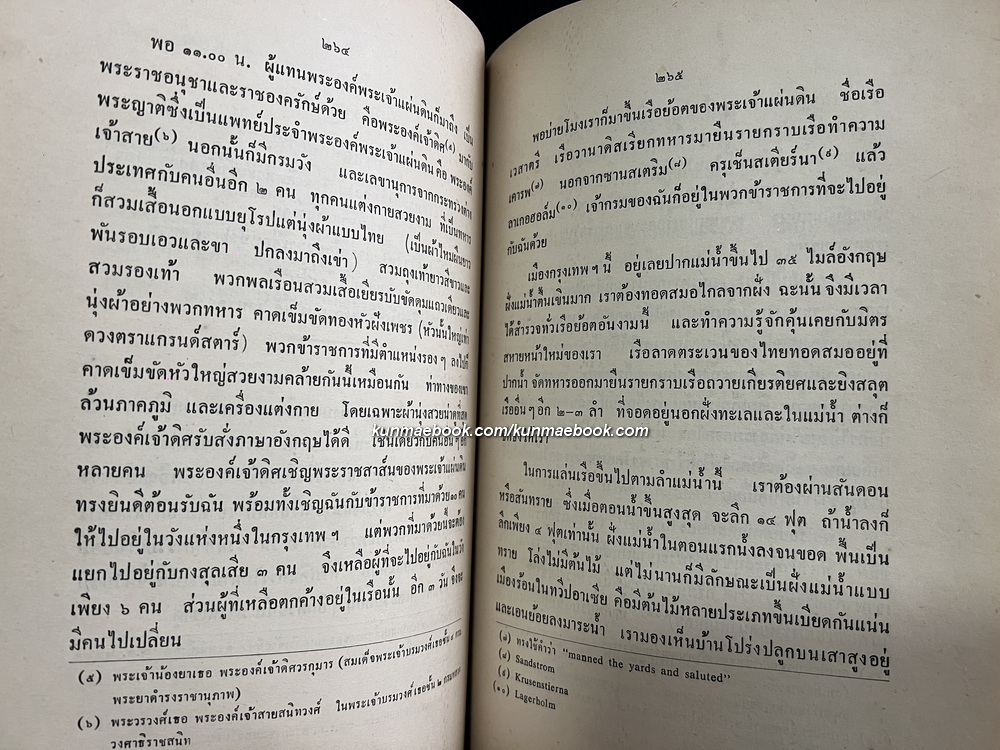 ๒๖๔
พอ ๑๑.๐๐ น. ผู้แทนพระองค์พระเจ้าแผ่นดินก็มาถึง เป็น
พระราชอนุชาและราชองครักษ์ด้วย คือพระองค์เจ้าดิศ(๕) มากับ
พระญาติซึ่งเป็นแพทย์ประจำพระองค์พระเจ้าแผ่นดิน คือ พระองค์
เจ้าสาย(๖) นอกนั้นก็มีกรมวัง และเลขานุการจากกระทรวงต่าง
ประเทศกับคนอื่นอีก ๒ คน ทุกคนแต่งกายสวยงาม ที่เป็นทหาร
ก็สวมเสื้อนอกแบบยุโรปแต่นุ่งผ้าแบบไทย (เป็นผ้าไหมผืนยาว
พันรอบเอวและขา ปกลงมาถึงเข่า) สวมถุงเท้ายาวสีขาวและ
สวมรองเท้า พวกพลเรือนสวมเสื้อเยียรบับขัดดุมแถวเดียวและ
นุ่งผ้าอย่างพวกทหาร คาดเข็มขัดทองหัวฝังเพชร (หัวนั้นใหญ่เท่า
ดวงตราแกรนด์สตาร์) พวกข้าราชการที่มีตำแหน่งรอง ๆ ลงไปก็
คาดเข็มขัดหัวใหญ่สวยงามคล้ายกันนี้เหมือนกัน ท่าทางของเขา
ล้วนภาคภูมิ และเครื่องแต่งกาย โดยเฉพาะผ้านุ่งสวยน่าดูที่สุด
พระองค์เจ้าดิศรับสั่งภาษาอังกฤษได้ดี เช่นเดียวกับคนอื่น ๆ อีก
หลายคน พระองค์เจ้าดิศเชิญพระราชสาส์นของพระเจ้าแผ่นดิน
ทรงยินดีต้อนรับฉัน พร้อมทั้งเชิญฉันกับข้าราชการที่มาด้วย ๑๐ คน
ให้ไปอยู่ในวังแห่งหนึ่งในกรุงเทพ ฯ แต่พวกที่มาด้วยนี้จะต้อง
แยกไปอยู่กับกงสุลเสีย ๓ คน จึงเหลือผู้ที่จะไปอยู่กับฉันในวัง
เพียง ๖ คน ส่วนผู้ที่เหลือตกค้างอยู่ในเรือนั้น อีก ๓ วัน จึงจะ
มีคนไปเปลี่ยน
(๕) พระเจ้าน้องยาเธอ พระองค์เจ้าดิศวรกุมาร (สมเด็จพระเจ้าบรมวงศ์เธอชั้น ๔ กรม
พระยาดำรงราชานุภาพ)
(๖) พระวรวงศ์เธอ พระองค์เจ้าสายสนิทวงศ์ ในพระเจ้าบรมวงศ์เธอชั้น ๒ กรมหลวง
วงศาธิราชสนิท
๒๖๕
พอบ่ายโมงเราก็มาขึ้นเรือย้อตของพระเจ้าแผ่นดิน ชื่อเรือ
เวสาตรี เรือวานาดิสเรียกทหารมายืนรายกราบเรือทำความ
เคารพ(๗) นอกจากซานสเตริม(๘) ครุเซ็นสเตียร์นา(๙) แล้ว
ลาเกอฮอล์ม(๑๐) เจ้ากรมของฉันก็อยู่ในพวกข้าราชการที่จะไปอยู่
กับฉันด้วย
เมืองกรุงเทพ ฯ นี้ อยู่เลยปากแม่น้ำขึ้นไป ๓๕ ไมล์อังกฤษ
ฝั่งแม่น้ำตื้นเขินมาก เราต้องทอดสมอไกลจากฝั่ง ฉะนั้น จึงมีเวลา
ได้สำรวจทั่วเรือย้อตอันงามนี้ และทำความรู้จักคุ้นเคยกับมิตร
สหายหน้าใหม่ของเรา เรือลาดตระเวนของไทยทอดสมออยู่ที่
ปากน้ำ จัดทหารออกมายืนรายกราบเรือถวายเกียรติยศและยิงสลุต
เรืออื่น ๆ อีก ๒-๓ ลำ ที่จอดอยู่นอกฝั่งทะเลและในแม่น้ำ ต่างก็
kunmaebook.com/kunmaebook.com
ในการแล่นเรือขึ้นไปตามลำแม่น้ำนี้ เราต้องผ่านสันดอน
หรือสันทราย ซึ่งเมื่อตอนน้ำขึ้นสูงสุด จะลึก ๑๔ ฟุต ถ้าน้ำลงก็
ลึกเพียง ๔ ฟุตเท่านั้น ฝั่งแม่น้ำในตอนแรกนั้งลงจนขอด พื้นเป็น
ทราย โล่งไม่มีต้นไม้ แต่ไม่นานก็มีลักษณะเป็นฝั่งแม่น้ำแบบ
เมืองร้อนในทวีปอาเซีย คือมีต้นไม้หลายประเภทขึ้นเบียดกันแน่น
และเอนย้อยลงมาระน้ำ เรามองเห็นบ้านโปร่งปลูกบนเสาสูงอยู่
(๗) ทรงใช้คำว่า "manned the yards and saluted"
(๘) Sandstrom
(๙) Krusenstierna
(๑๐) Lagerholm